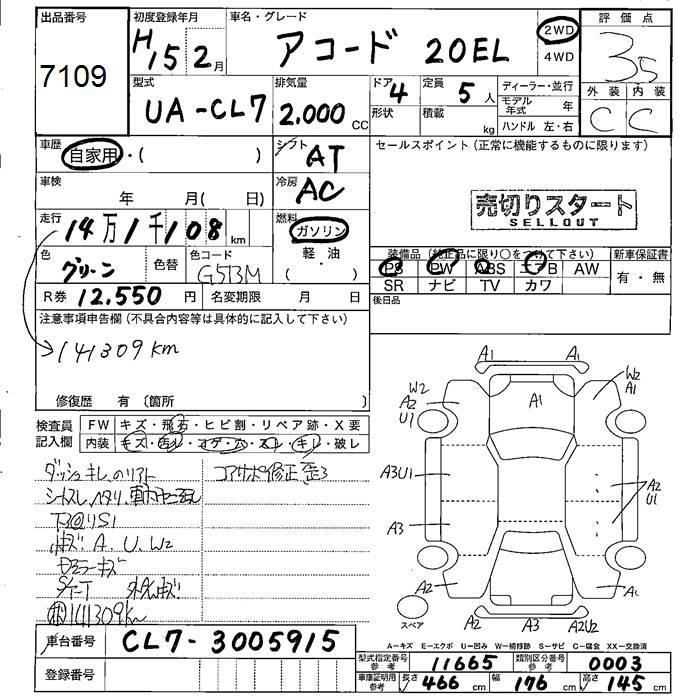 出品番号 初度登録年月 車名・グレード 評価点
7109 H15 2月 アコード 20EL 2WD 4WD 35
型式 排気量 ドア 定員 ディーラー・並行 外装 内装
UA-CL7 2.000 CC 4 5人 モデル年式 年 C C
形状 積載 kg ハンドル 左・右
車歴 自家用・( ) シフト AT セールスポイント (正常に機能するものに限ります)
車検 年 月( 日) 冷房 AC
売切りスタート
SELLOUT
走行 14万1千108km 燃料 ガソリン
軽・油
( )
色 グリーン 色替 色コード G513M
装備品 (純正品に限り○をつけて下さい) 新車保証書
PS PW ABS エアB AW 有・無
SR ナビ TV カワ
R券 12.550円 名変期限 月 日 後日品
注意事項申告欄 (不具合内容等は具体的に記入して下さい)
141309km
修復歴 有 〔箇所
検査員記入欄 FW キズ・飛石・ヒビ割・リペア跡・X要
内装 キズ・汚レ・コゲ・穴・スレ・キレ・破レ
コアサポ修正歪3
A.U.W2
141309km
A1 A1
W2 A2 U1 A1 W2 A1
A3U1 A2 U1
A3
A2 A1
A2 A3 A2U2
スペア
車台番号 CL7-3005915
A-キズ E-エクボ U-凹み W-補修跡 S-サビ C-腐食 XX-交換済
登録番号 型式指定番号 参考 11665 類別区分番号 参考 0003
車庫証明用 参考 長さ 466cm 幅 176cm 高さ 145cm